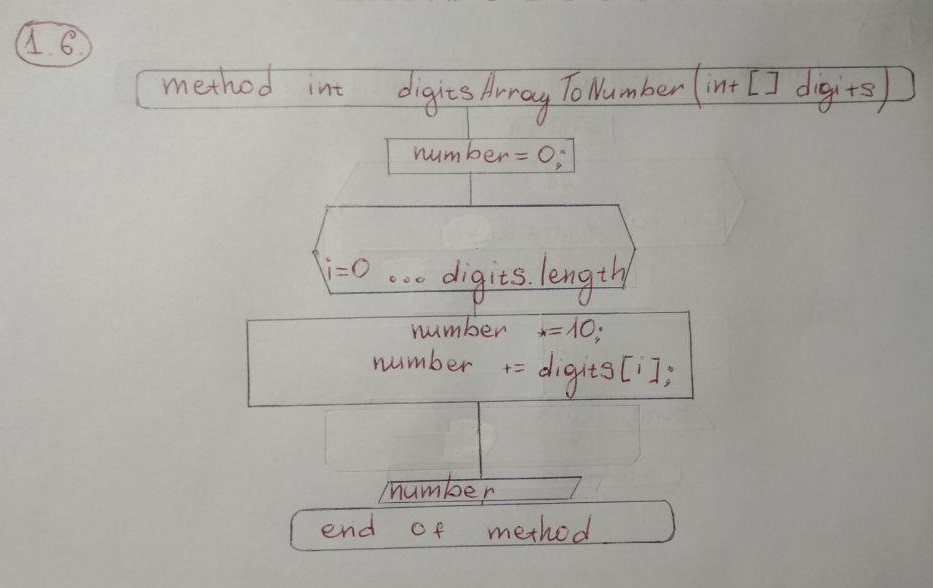 1.6.
method int digitsArrayToNumber(int[] digits)
number=0;
i=0 ... digits.length
number *=10;
number += digits[i];
number
end of method